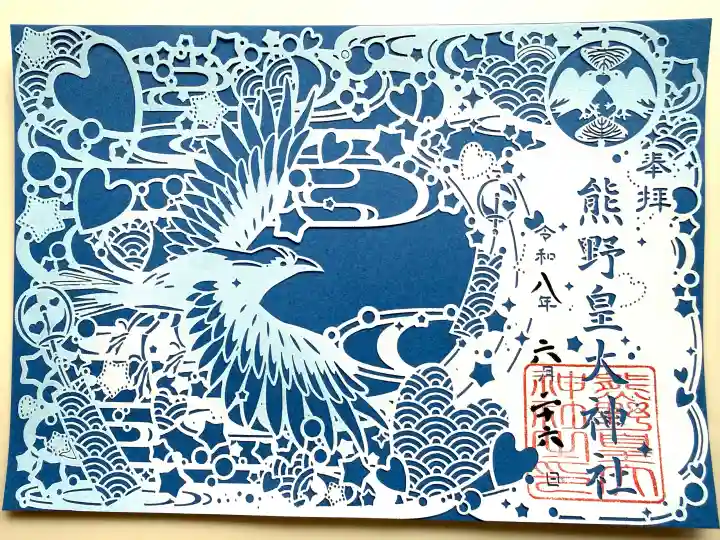 奉拝
熊野皇大神社
令和八年
六月二十六日